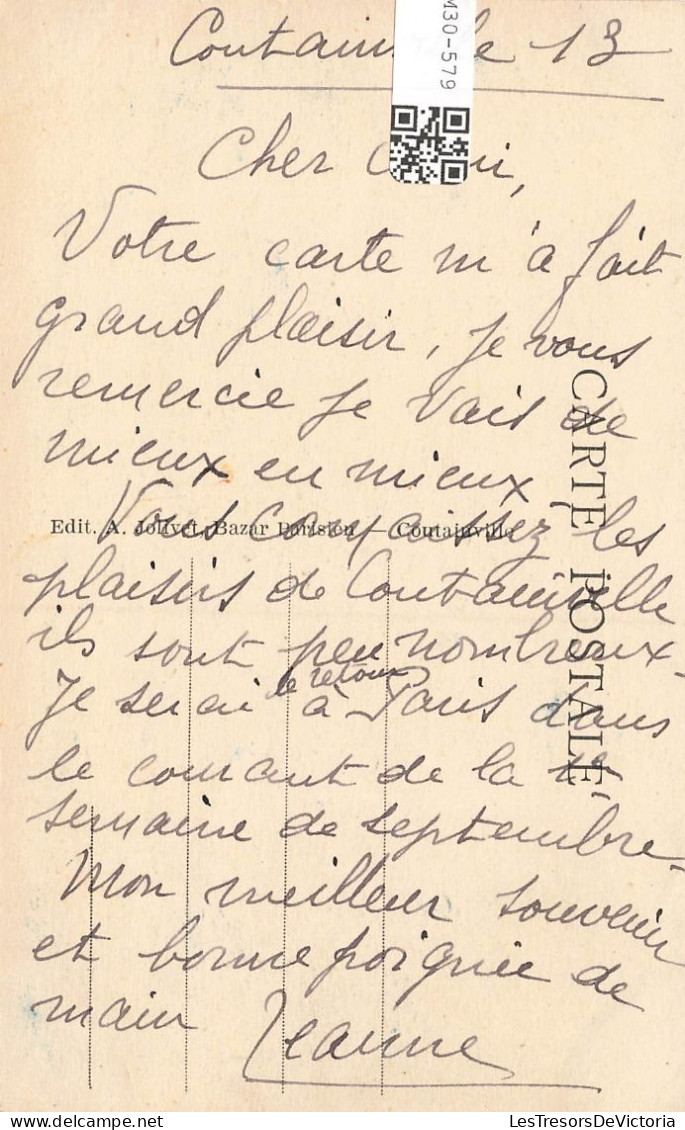 Coutainville 13
M30-579
Cher Ami,
Votre carte m'a fait
grand plaisir, je vous
remercie je vais de
mieux en mieux
Vous connaissez les
Edit. A. Jolivet, Bazar Parisien — Coutainville
plaisirs de Coutainville
ils sont peu nombreux.
Je serai de retour à Paris dans
le courant de la 1re
semaine de septembre.
Mon meilleur souvenir
et bonne poignée de
main Jeanne
CARTE POSTALE
LesTresorsDeVictoria